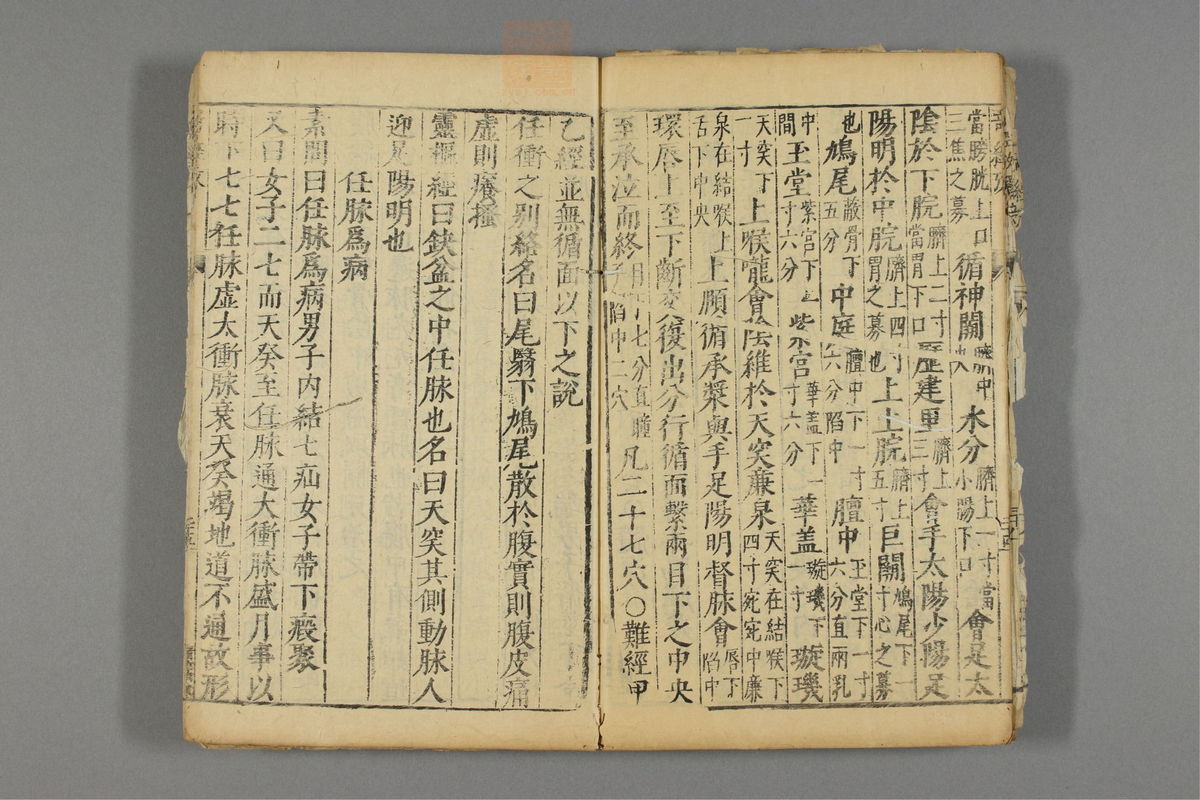 當膀胱上口三焦之募循神闕臍中央水分臍上一寸當小腸下口會足太
陰於下脘臍上二寸當胃下口歷建里臍上三寸會手太陽少陽足
陽明於中脘臍上四寸胃之募也上上脘臍上五寸巨闕鳩尾下一寸心之募
也鳩尾蔽骨下五分中庭膻中下一寸六分陷中膻中玉堂下一寸六分直兩乳
中間玉堂紫宮下一寸六分紫宮華蓋下一寸六分華蓋璇璣下一寸璇璣
天突下一寸上喉嚨會陰維於天突廉泉天突在結喉下四寸宛宛中廉
泉在結喉上舌下中央上頤循承漿與手足陽明督脉會唇下陷中
環唇上至下齗交復出分行循面繫兩目下之中央
至承泣而終目下七分直瞳子陷中二穴凡二十七穴○難經甲
乙經並無循面以下之說
任衝之別絡名曰尾翳下鳩尾散於腹實則腹皮痛
虛則癢搔
靈樞經曰鈌盆之中任脉也名曰天突其側動脉人
迎足陽明也
任脉爲病
素問曰任脉爲病男子內結七疝女子帶下瘕聚
又曰女子二七而天癸至任脉通大衝脉盛月事以
時下七七任脉虛太衝脉衰天癸竭地道不通故形